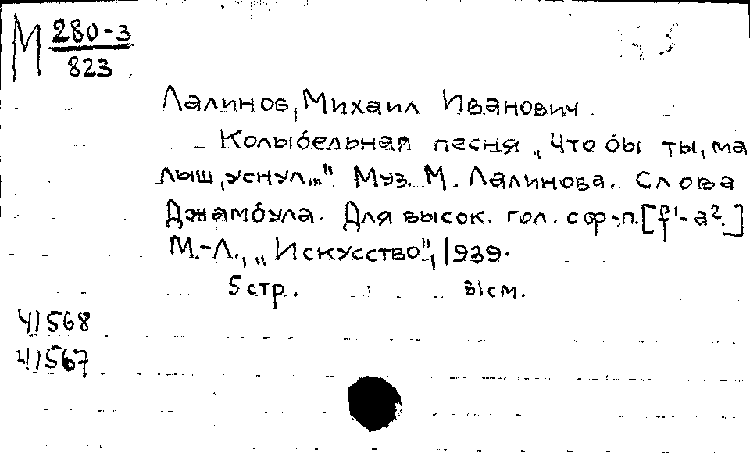 М 280-3
823
Лалинов, Михаил Иванович.
Колыбельная песня „Что бы ты, ма
лыш, уснул..." Муз. М. Лалинова. Слова
Джамбула. Для высок. гол. с ф-п. [f¹-a².]
М.-Л., „Искусство", 1939.
5 стр. 31 см.
41568
41567